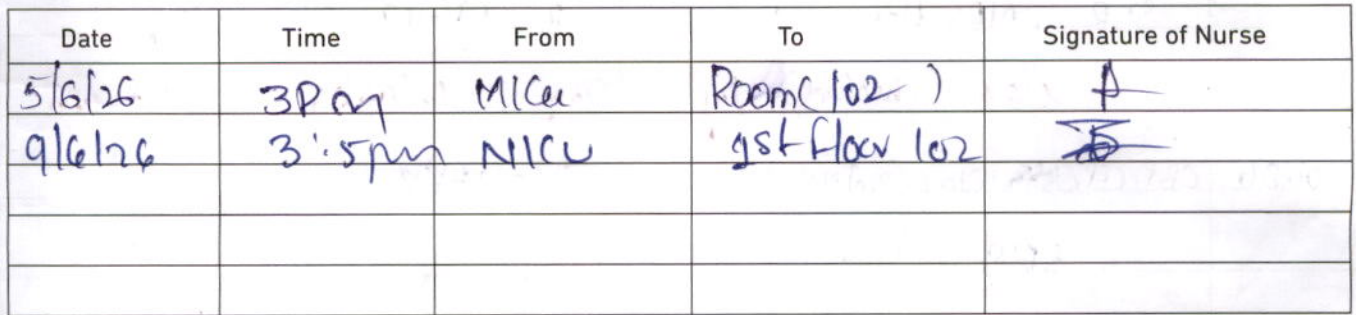 Date Time From To Signature of Nurse
5/6/26 3Pm MICU Room(102)
9/6/26 3:5pm NICU 1st floor 102